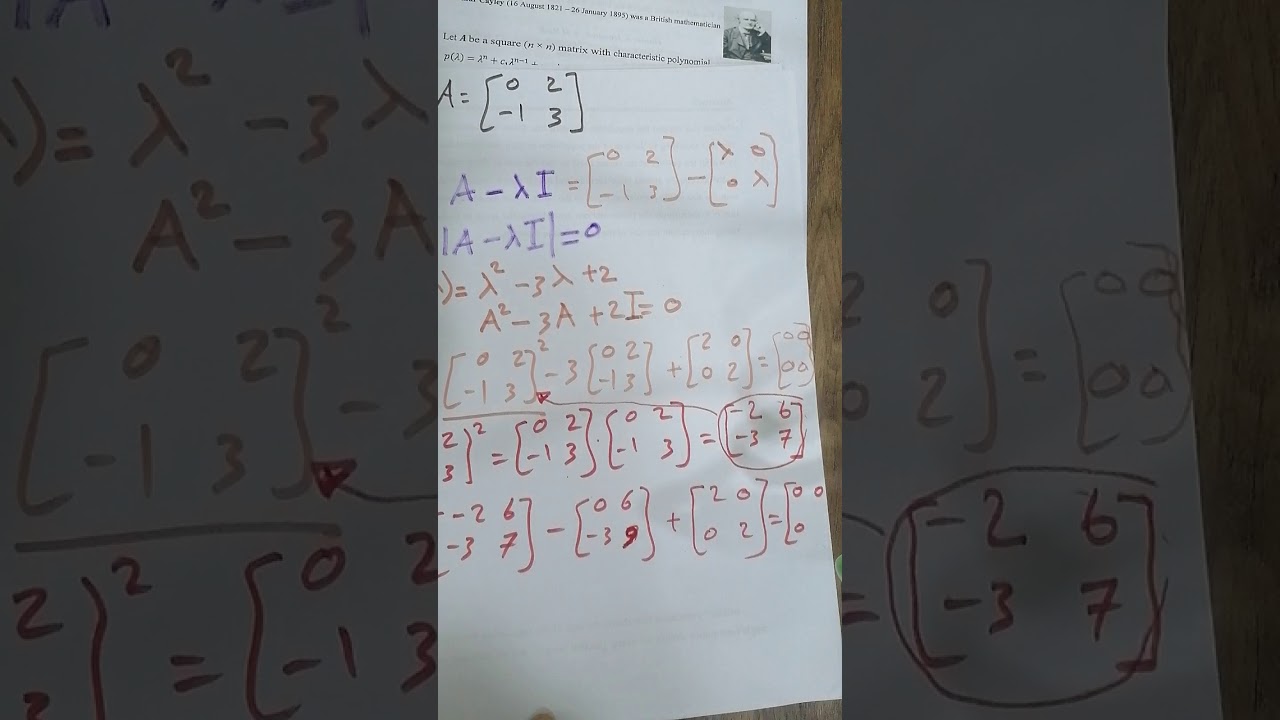 Cayley (16 August 1821 – 26 January 1895) was a British mathematician
Let A be a square (n × n) matrix with characteristic polynomial
p(λ) = λⁿ + c₁λⁿ⁻¹ +
A = [0 2; -1 3]
A - λI = [0 2; -1 3] - [λ 0; 0 λ]
|A - λI| = 0
) = λ² - 3λ + 2
A² - 3A + 2I = 0
[0 2; -1 3]² - 3 [0 2; -1 3] + [2 0; 0 2] = [0 0; 0 0]
2; 3]² = [0 2; -1 3] · [0 2; -1 3] = [-2 6; -3 7]
[-2 6; -3 7] - [0 6; -3 9] + [2 0; 0 2] = [0 0; 0